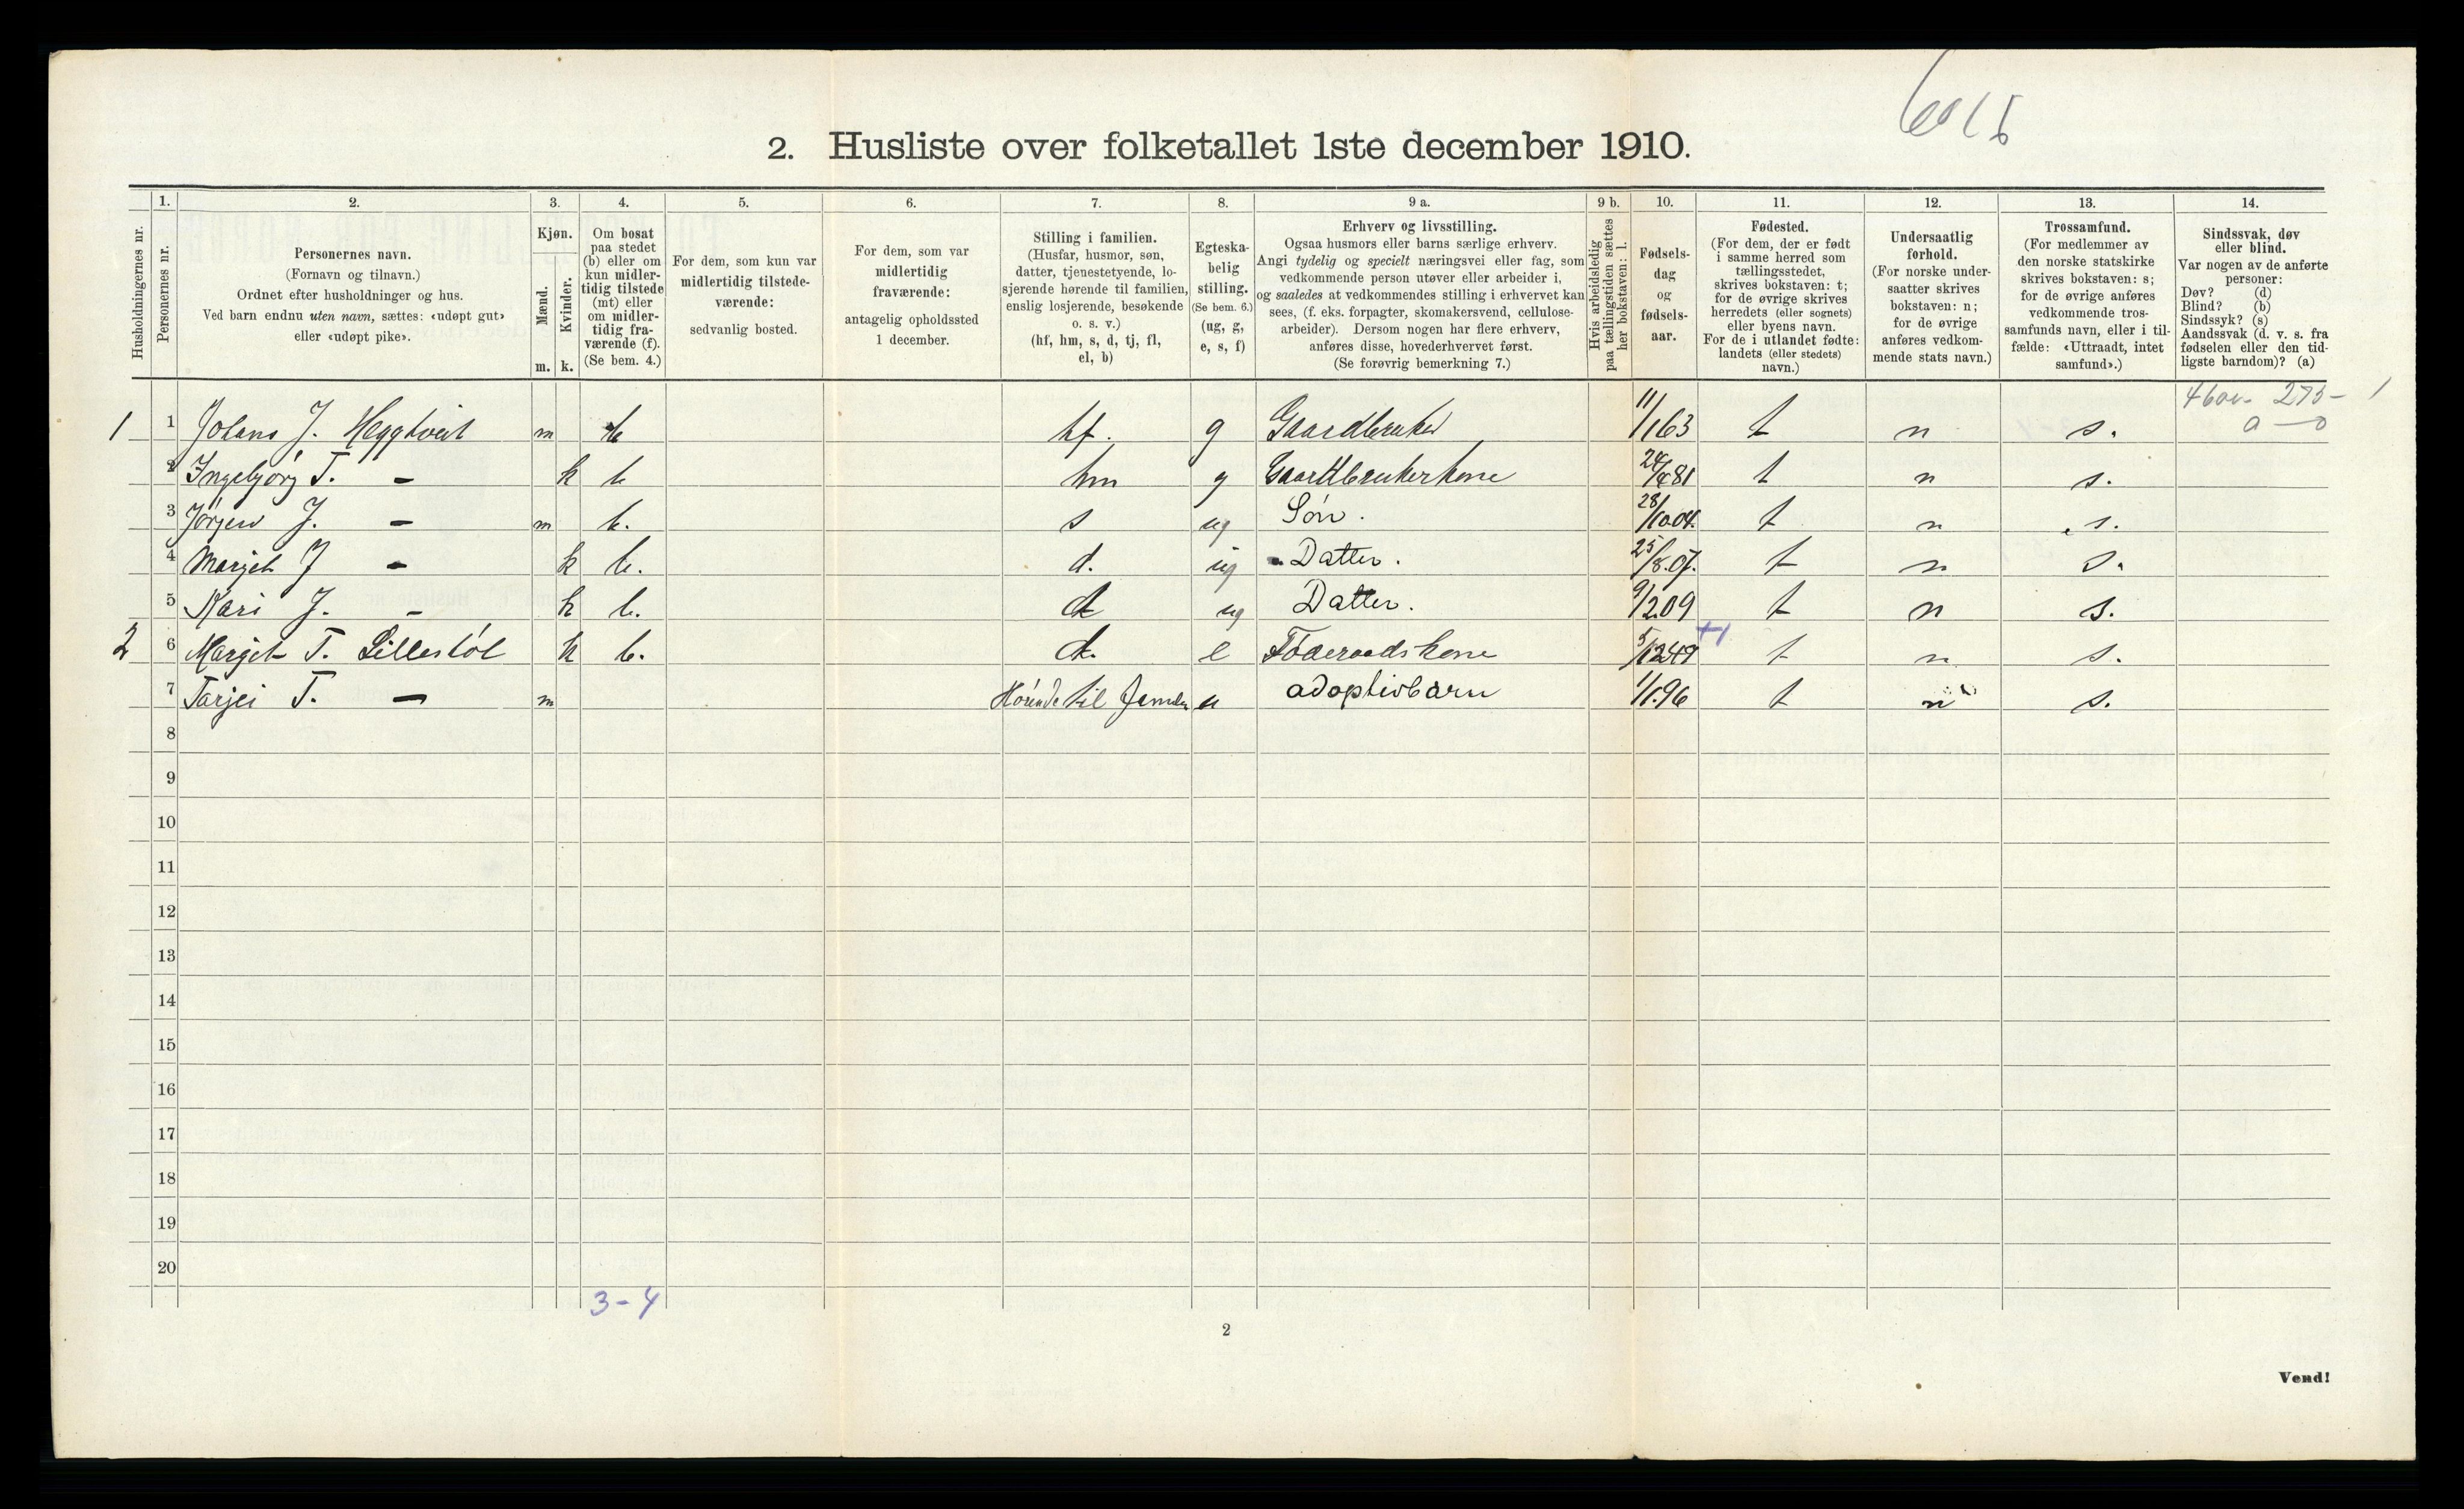 6015
2. Husliste over folketallet 1ste december 1910.
Husholdningernes nr.
1. Personernes nr.
2. Personernes navn.
(Fornavn og tilnavn.)
Ordnet efter husholdninger og hus.
Ved barn endnu uten navn, sættes: «udøpt gut»
eller «udøpt pike».
3. Kjøn.
Mænd. m.
Kvinder. k.
4. Om bosat
paa stedet
(b) eller om
kun midler-
tidig tilstede
(mt) eller
om midler-
tidig fra-
værende (f).
(Se bem. 4.)
5. For dem, som kun var
midlertidig tilstede-
værende:
sedvanlig bosted.
6. For dem, som var
midlertidig
fraværende:
antagelig opholdssted
1 december.
7. Stilling i familien.
(Husfar, husmor, søn,
datter, tjenestetyende, lo-
sjerende hørende til familien,
enslig losjerende, besøkende
o. s. v.)
(hf, hm, s, d, tj, fl,
el, b)
8. Egteska-
belig
stilling.
(Se bem. 6.)
(ug, g,
e, s, f)
9 a. Erhverv og livsstilling.
Ogsaa husmors eller barns særlige erhverv.
Angi tydelig og specielt næringsvei eller fag, som
vedkommende person utøver eller arbeider i,
og saaledes at vedkommendes stilling i erhvervet kan
sees, (f. eks. forpagter, skomakersvend, cellulose-
arbeider). Dersom nogen har flere erhverv,
anføres disse, hovederhvervet først.
(Se forøvrig bemerkning 7.)
9 b. Hvis arbeidsledig
paa tællingstiden sættes
her bokstaven: l.
10. Fødsels-
dag
og
fødsels-
aar.
11. Fødested.
(For dem, der er født
i samme herred som
tællingsstedet,
skrives bokstaven: t;
for de øvrige skrives
herredets (eller sognets)
eller byens navn.
For de i utlandet fødte:
landets (eller stedets)
navn.)
12. Undersaatlig
forhold.
(For norske under-
saatter skrives
bokstaven: n;
for de øvrige
anføres vedkom-
mende stats navn.)
13. Trossamfund.
(For medlemmer av
den norske statskirke
skrives bokstaven: s;
for de øvrige anføres
vedkommende tros-
samfunds navn, eller i til-
fælde: «Uttraadt, intet
samfund».)
14. Sindssvak, døv
eller blind.
Var nogen av de anførte
personer:
Døv? (d)
Blind? (b)
Sindssyk? (s)
Aandssvak (d. v. s. fra
fødselen eller den tid-
ligste barndom)? (a)
1 1 m b hf. g Gaardbruker 11/1 63 t n s.
2 Ingebjørg T. - k b hm g Gaardbrukerkone 24/4 81 t n s.
3 Jørjen J. - m b. s ug Søn. 28/10 04. t n s.
4 Margit J - k b. d. ug Datter. 25/8.07. t n s.
5 Kari J. - k b. d ug Datter. 9/2 09 t n s.
2 6 Margit T. Lillestøl k b. d. e Føderaadskone 5/12 49 t n s.
7 Tarjei T. - m til u adoptivbarn 1/1.96 t n s.
8
9
10
11
12
13
14
15
16
17
18
19
20
3-4
2
Vend!